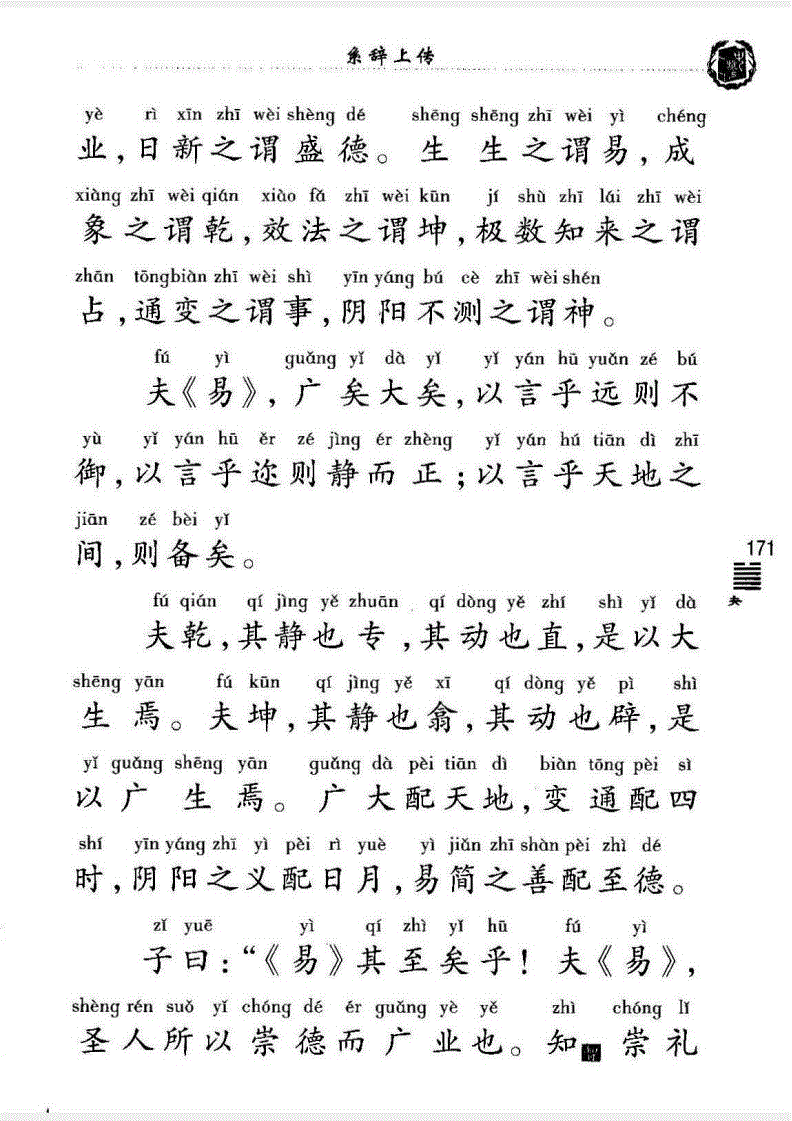 系辞上传
yè rì xīn zhī wèi shèng dé shēng shēng zhī wèi yì chéng
业，日新之谓盛德。生生之谓易，成
xiàng zhī wèi qián xiào fǎ zhī wèi kūn jí shù zhī lái zhī wèi
象之谓乾，效法之谓坤，极数知来之谓
zhān tōngbiàn zhī wèi shì yīn yáng bú cè zhī wèi shén
占，通变之谓事，阴阳不测之谓神。
fú yì guǎng yǐ dà yǐ yǐ yán hū yuǎn zé bú
夫《易》，广矣大矣，以言乎远则不
yù yǐ yán hū ěr zé jìng ér zhèng yǐ yán hú tiān dì zhī
御，以言乎迩则静而正；以言乎天地之
jiān zé bèi yǐ
间，则备矣。
171
夬
fú qián qí jìng yě zhuān qí dòng yě zhí shì yǐ dà
夫乾，其静也专，其动也直，是以大
shēng yān fú kūn qí jìng yě xī qí dòng yě pì shì
生焉。夫坤，其静也翕，其动也辟，是
yǐ guǎng shēng yān guǎng dà pèi tiān dì biàn tōng pèi sì
以广生焉。广大配天地，变通配四
shí yīn yáng zhī yì pèi rì yuè yì jiǎn zhī shàn pèi zhì dé
时，阴阳之义配日月，易简之善配至德。
zǐ yuē yì qí zhì yǐ hū fú yì
子曰：“《易》其至矣乎！夫《易》，
shèng rén suǒ yǐ chóng dé ér guǎng yè yě zhì chóng lǐ
圣人所以崇德而广业也。知智崇礼